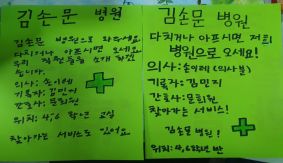 김손문 병원
김손문 병원으로 와주세요.
다치거나 아프시면 오세요.
우리 직원들을 소개 하겠
습니다.
의사: 손이레
기록자: 김민지
간호사: 문희원
위치: 4,6 학년 교실
찾아가는 서비스도 있어요.
김손문 병원
다치거나 아프시면 저희
병원으로 오세요!
의사: 손이레 (의사봉)
기록자: 김민지
간호사: 문희원
찾아가는 서비스!
김손문 병원!
위치: 4,6학년 반